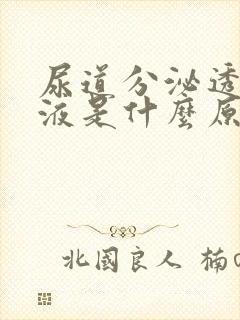 尿道分泌透
液是什麼原
北國良人 楠